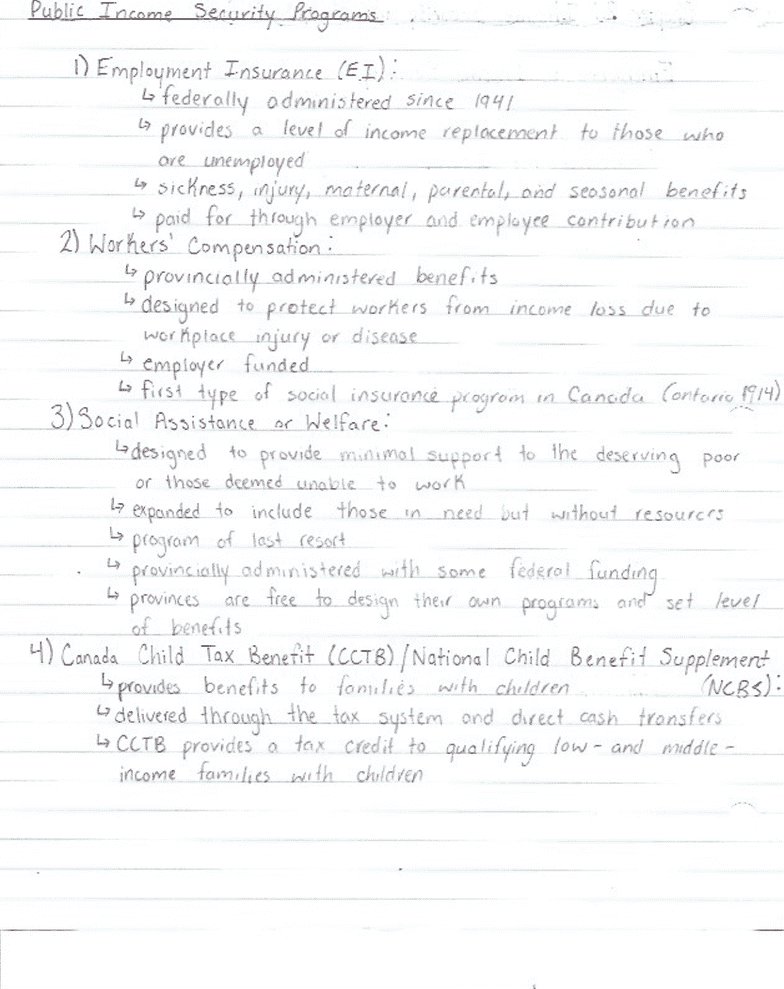 Public Income Security Programs
1) Employment Insurance (EI):
↳ federally administered since 1941
↳ provides a level of income replacement to those who
are unemployed
↳ sickness, injury, maternal, parental, and seasonal benefits
↳ paid for through employer and employee contribution
2) Workers' Compensation:
↳ provincially administered benefits
↳ designed to protect workers from income loss due to
workplace injury or disease
↳ employer funded
↳ first type of social insurance program in Canada (Ontario 1914)
3) Social Assistance or Welfare:
↳ designed to provide minimal support to the deserving poor
or those deemed unable to work
↳ expanded to include those in need but without resources
↳ program of last resort
↳ provincially administered with some federal funding
↳ provinces are free to design their own programs and set level
of benefits
4) Canada Child Tax Benefit (CCTB)/National Child Benefit Supplement
(NCBS):
↳ provides benefits to families with children
↳ delivered through the tax system and direct cash transfers
↳ CCTB provides a tax credit to qualifying low- and middle-
income families with children